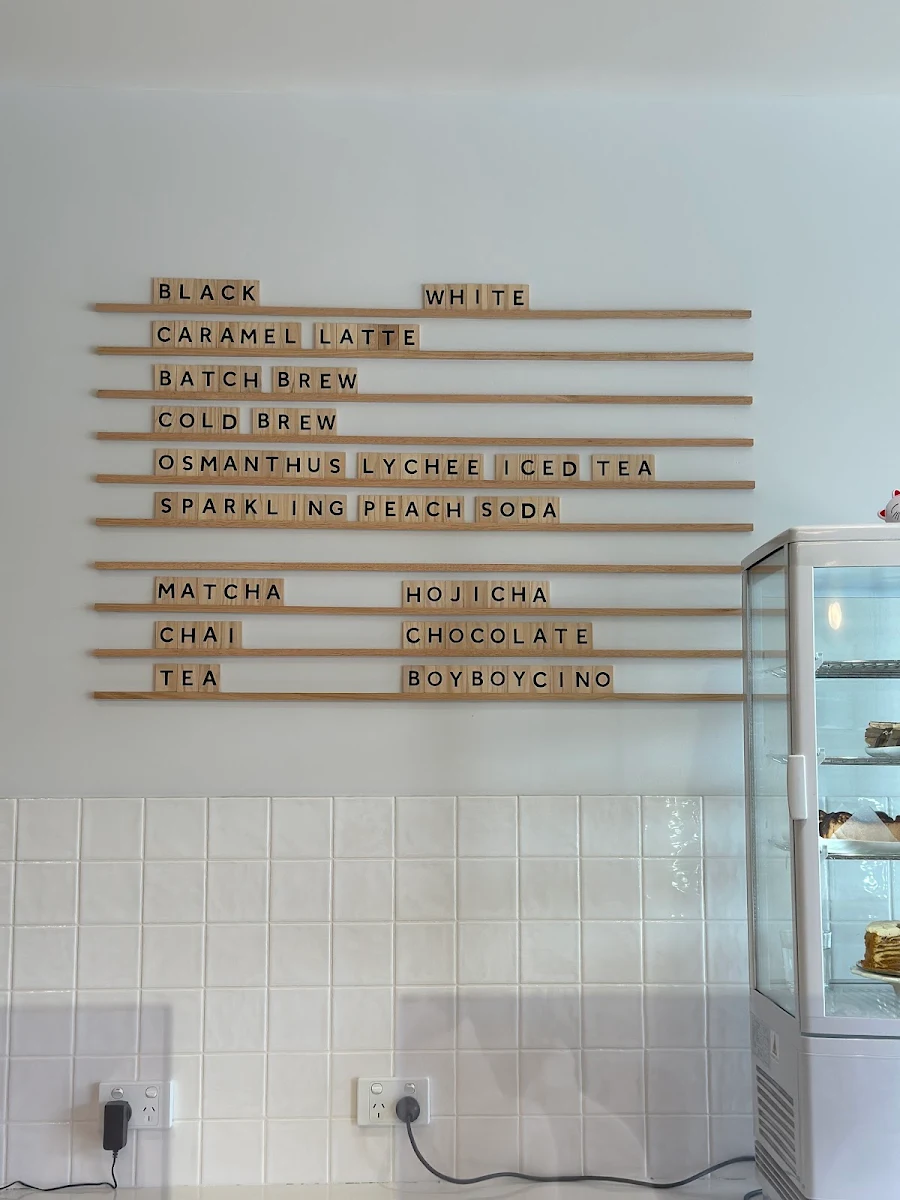 BLACK WHITE
CARAMEL LATTE
BATCH BREW
COLD BREW
OSMANTHUS LYCHEE ICED TEA
SPARKLING PEACH SODA
MATCHA HOJICHA
CHAI CHOCOLATE
TEA BOYBOYCINO